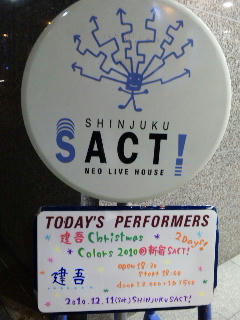 SHINJUKU
SACT!
NEO LIVE HOUSE
TODAY'S PERFORMERS
建吾 Christmas
Colors 2010@新宿SACT!
2Days!
open 18:30
start 19:00
建吾
2010.12.11(sat)SHINJUKU SACT!